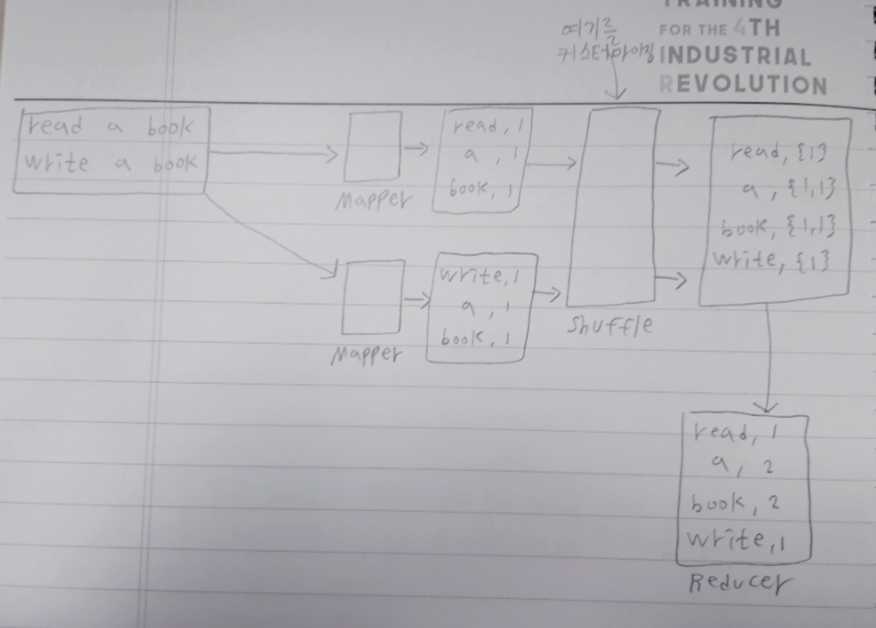 TRAINING
FOR THE 4TH
INDUSTRIAL
REVOLUTION
여기를
커스터마이징
read a book
write a book
Mapper
read, 1
a, 1
book, 1
Mapper
write, 1
a, 1
book, 1
Shuffle
read, {1}
a, {1,1}
book, {1,1}
write, {1}
read, 1
a, 2
book, 2
write, 1
Reducer